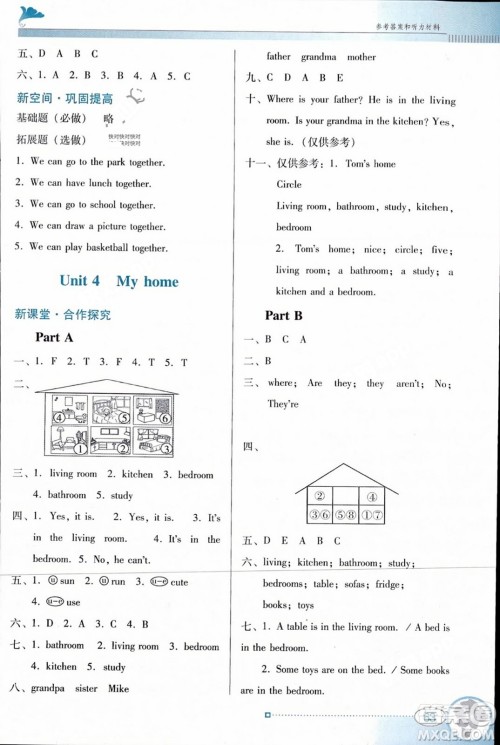 参考答案和听力材料
五、D A B C
六、1. A 2. B 3. B 4. A 5. C
新空间·巩固提高
基础题（必做） 略
拓展题（选做）
1. We can go to the park together.
2. We can have lunch together.
3. We can go to school together.
4. We can draw a picture together.
5. We can play basketball together.
Unit 4 My home
新课堂·合作探究
Part A
一、1. F 2. T 3. F 4. T 5. T
二、
④ ② ⑤
① ③
三、1. living room 2. kitchen 3. bedroom
4. bathroom 5. study
四、1. Yes, it is. 2. Yes, it is. 3. It's
in the living room. 4. It's in the
bedroom. 5. No, he can't.
五、1. u sun 2. u run 3. u-e cute
4. u-e use
六、1. D 2. A 3. C 4. B
七、1. bathroom 2. living room 3. kitchen
4. bedroom 5. study
八、grandpa sister Mike
father grandma mother
九、C D A B E
十、Where is your father? He is in the living
room. Is your grandma in the kitchen? Yes,
she is.（仅供参考）
十一、仅供参考：1. Tom's home
Circle
Living room, bathroom, study, kitchen,
bedroom
2. Tom's home; nice; circle; five;
living room; a bathroom; a study; a
kitchen and a bedroom.
Part B
一、B C A
二、B
三、where; Are they; they aren't; No;
They're
四、
② ④
③⑥ ⑤⑧ ①⑦
五、D E A B C
六、living; kitchen; bathroom; study;
bedrooms; table; sofas; fridge;
books; toys
七、1. A table is in the living room. / A bed is
in the bedroom.
2. Some toys are on the bed. / Some books
are in the bedroom.
MXQE.COM